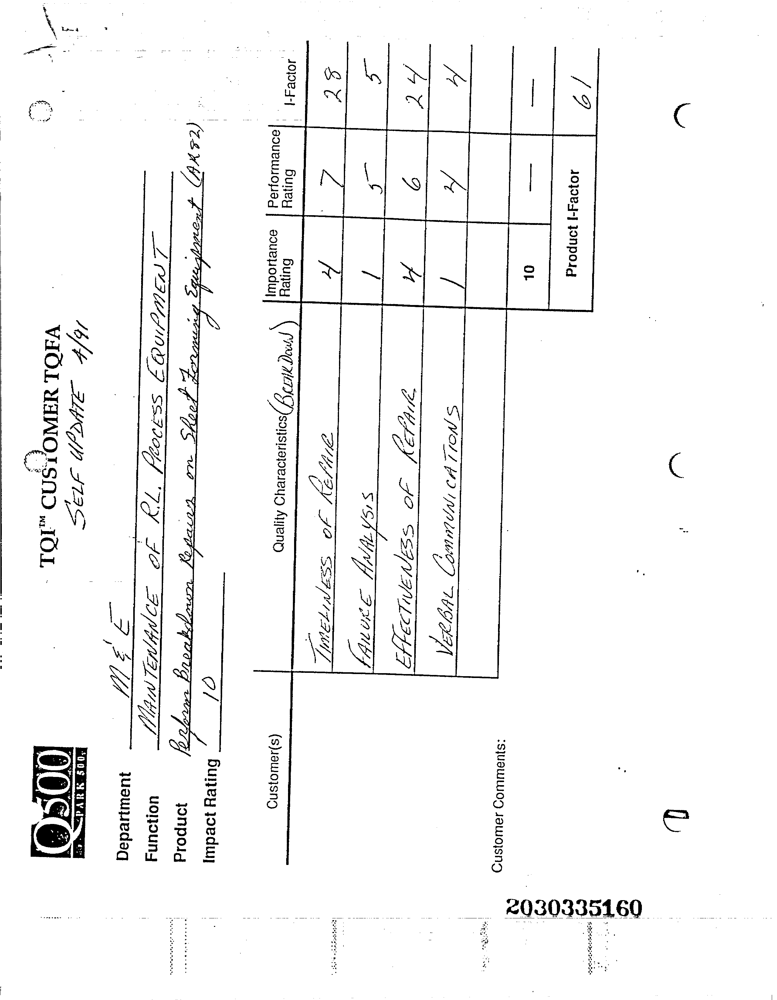 Q500
PARK 500
TQI™ CUSTOMER TQFA
SELF UPDATE 4/91
Department M & E
Function MAINTENANCE OF R.L. PROCESS EQUIPMENT
Product Perform Breakdown Repairs on Sheet Forming Equipment (AK82)
Impact Rating 10
Customer(s) Quality Characteristics Importance Rating Performance Rating I-Factor
TIMELINESS OF REPAIR 4 7 28
FAILURE ANALYSIS 1 5 5
EFFECTIVENESS OF REPAIR 4 6 24
VERBAL COMMUNICATIONS 1 4 4
10 — —
Product I-Factor 61
Customer Comments:
2030335160